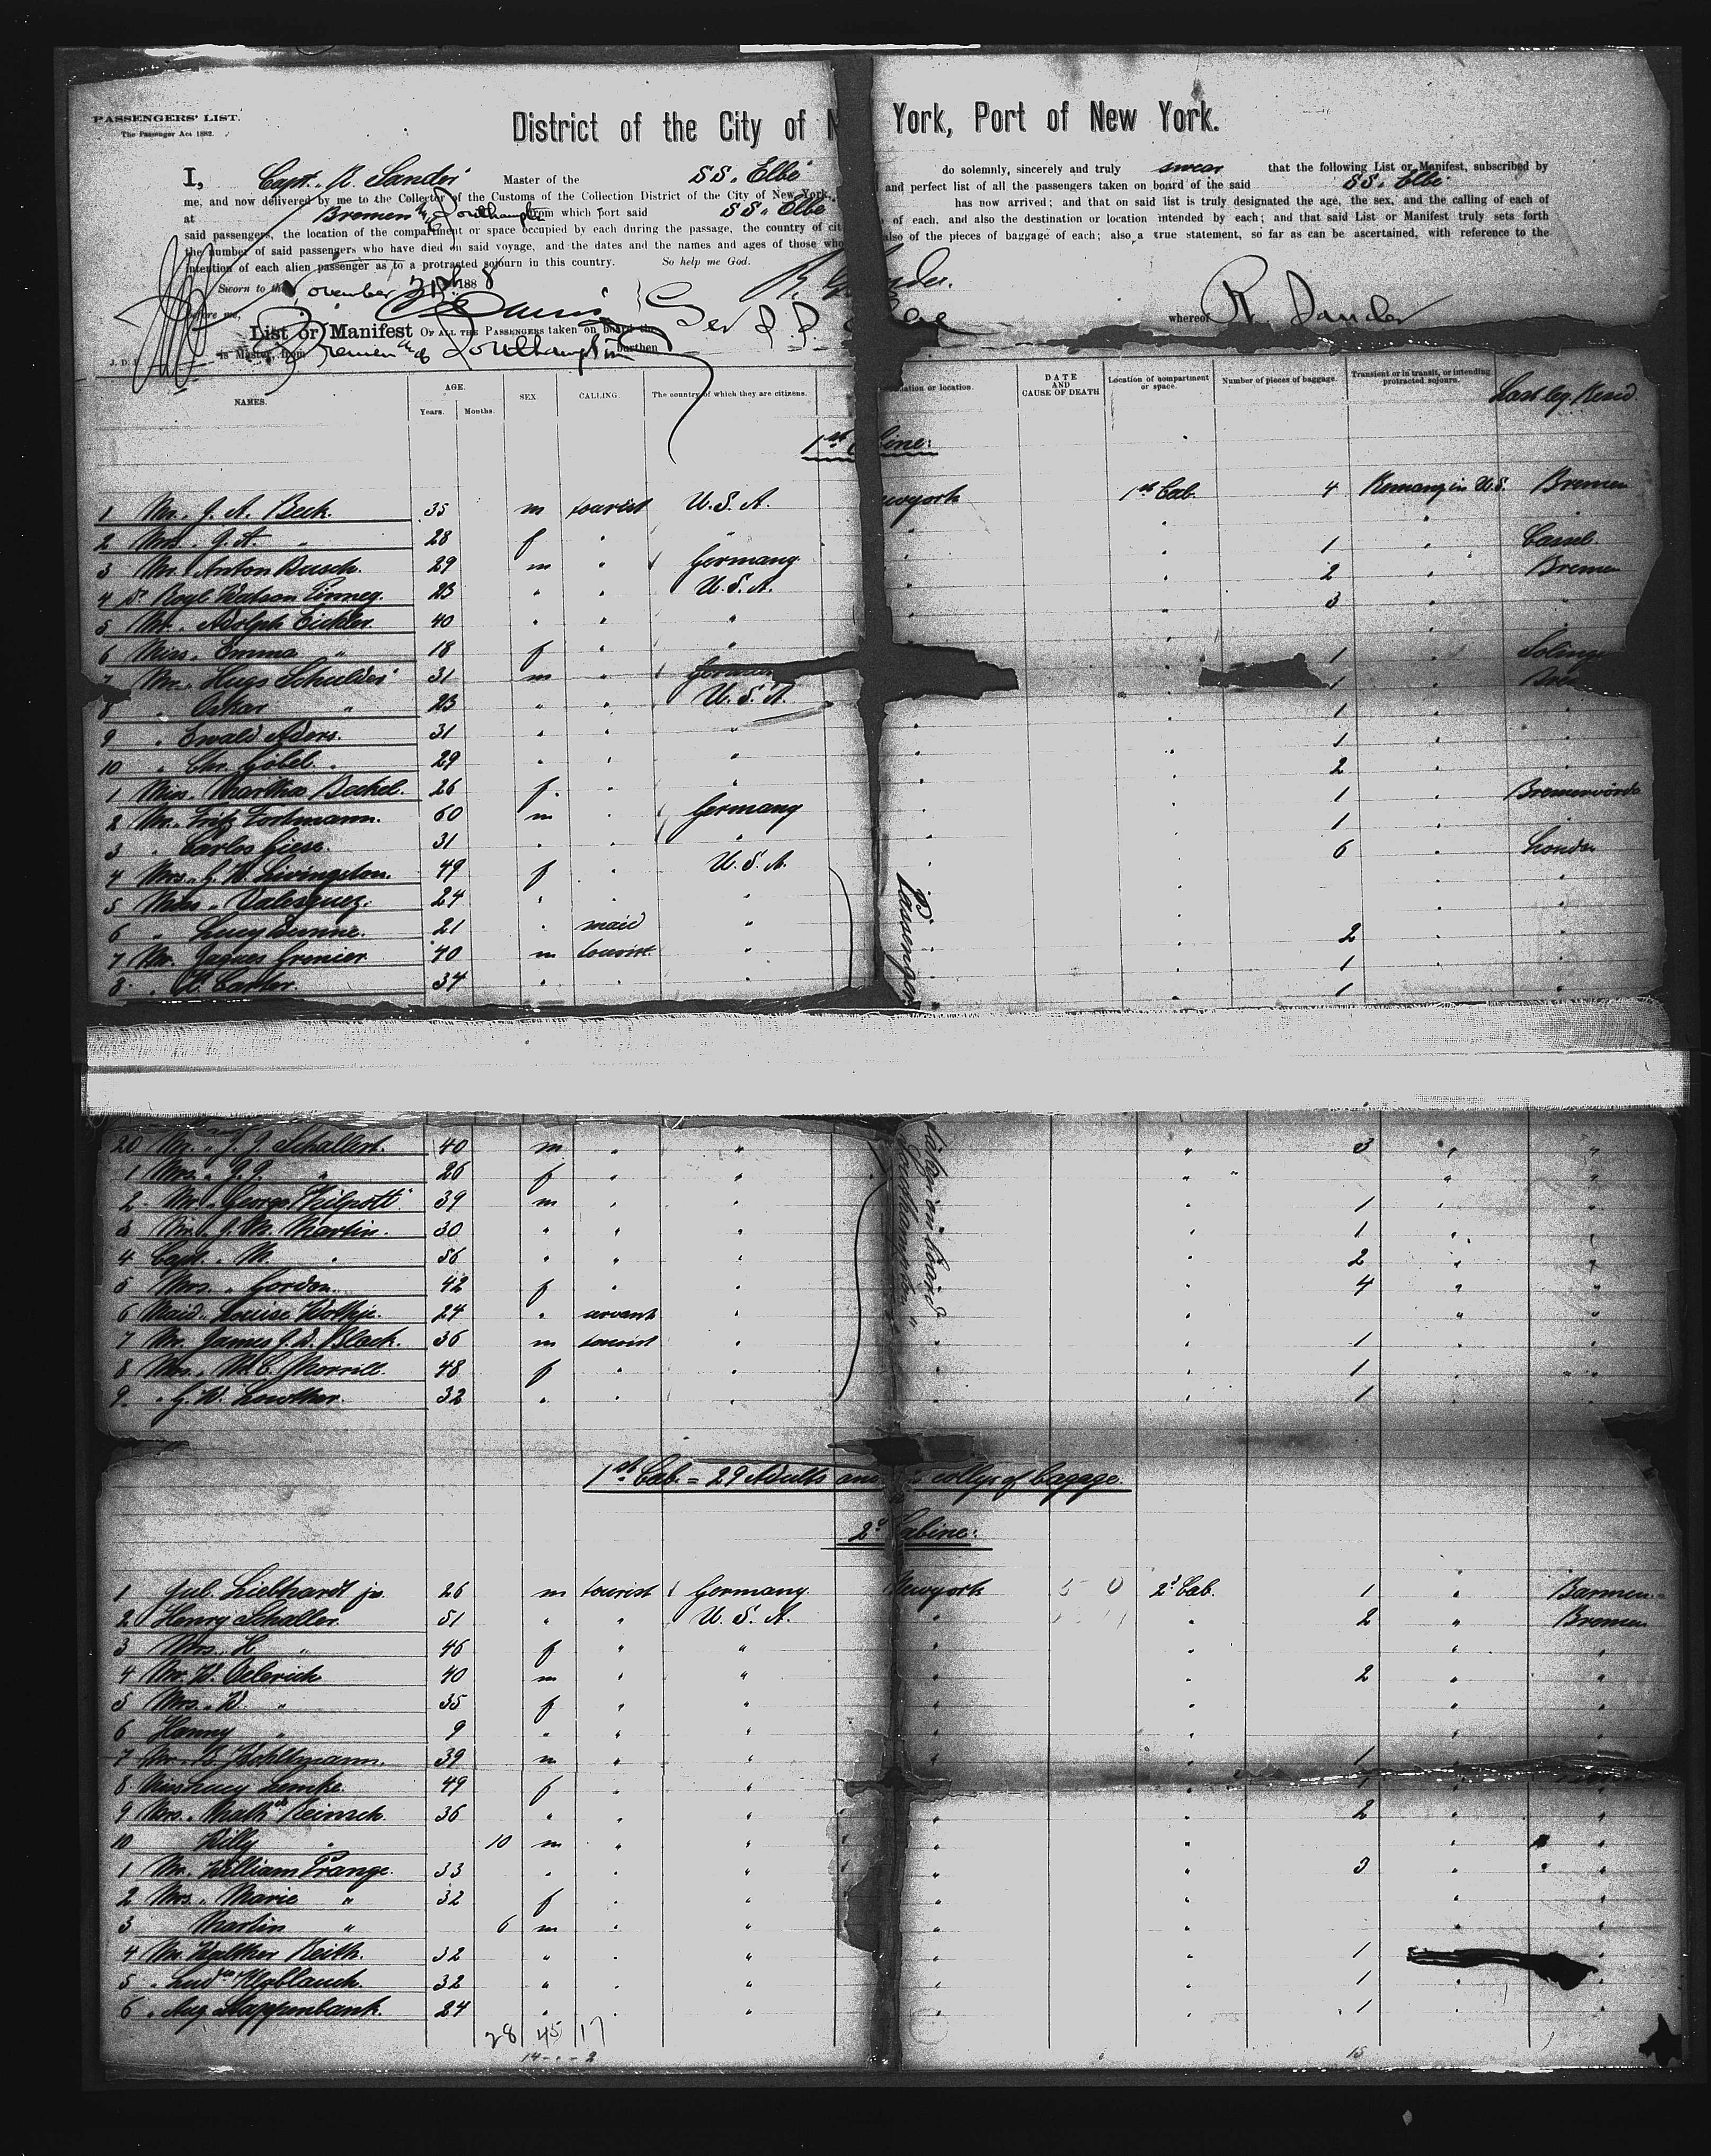 PASSENGERS' LIST.
The Passenger Act 1882.
District of the City of N York, Port of New York.
I, Capt. R. Sander Master of the SS. Elbe do solemnly, sincerely and truly swear that the following List or Manifest, subscribed by
me, and now delivered by me to the Collector of the Customs of the Collection District of the City of New York, and perfect list of all the passengers taken on board of the said SS. Elbe
at Bremen & Southampton from which port said SS. Elbe has now arrived; and that on said list is truly designated the age, the sex, and the calling of each of
said passengers, the location of the compartment or space occupied by each during the passage, the country of cit of each, and also the destination or location intended by each; and that said List or Manifest truly sets forth
the number of said passengers who have died on said voyage, and the dates and the names and ages of those who also of the pieces of baggage of each; also a true statement, so far as can be ascertained, with reference to the
intention of each alien passenger as to a protracted sojourn in this country. So help me God.
Sworn to the November 21st 1888 R. Sander
before me,
List or Manifest OF ALL THE PASSENGERS taken on board the whereof R. Sander
is Master, from Bremen and Southampton burthen
NAMES. AGE. Years. Months. SEX. CALLING. The country of which they are citizens. location. DATE AND CAUSE OF DEATH Location of compartment or space. Number of pieces of baggage. Transient or in transit, or intending protracted sojourn. Last leg. Resid.
1st Cabine:
1 Mr. J. A. Beck. 35 m tourist U.S.A. ewyork 1st Cab. 4 Remang in U.S. Bremen
2 Mrs. J. A. " 28 f " "
3 Mr. Anton Busch. 29 m " Germany " 1 " Cassel.
4 Dr Watson 23 " " U.S.A. " 2 " Bremen
5 Mr. Adolph Eickler 40 " " " " 3 " "
6 Miss. Emma " 18 f " "
7 Mr. Hugo 31 m " 1 "
8 " Oskar " 23 " " U.S.A. 1
9 " Ewald Aders. 31 " " " " 1 " "
10 " Chr. Göbel. 29 " " " " 1 " "
1 Miss. Martha Beckel. 26 f " " " 2 " "
2 Mr. Fritz Fortmann. 60 m " Germany " 1 " Bremervörde
3 " Carlos Giese. 31 " " " " 1 "
4 Mrs. G. W. Livingston. 49 f " U.S.A. " 6 " London
5 Miss. Valesquez. 24 " " "
6 " Lucy Dunne. 21 " maid "
7 Mr. Jaques Grenier 40 m tourist. " 2 " "
8 " Carter. 34 " " " 1 " "
1
Passengers
20 Mr. J. J. Schallert. 40 m " " " 3 " "
1 Mrs. J. J. " 26 f " " " " "
2 Mr. George Philpott 39 m " " " 1 " "
3 Mr. J. M. Martin. 30 " " " " 1 " "
4 Capt. M. " 56 " " " " 2 " "
5 Mrs. Gordon. 42 f " " " 4 " "
6 Maid. Louise 24 " servant " " " "
7 Mr. James J. D. Black. 36 m tourist " " 1 " "
8 Mrs. M. C. Morrill. 48 f " " " 1 " "
9 " G. W. Lowther. 32 " " " " 1
taken on board
Southampton
1st Cab. = 29 Adults and collys of bagage.
2d Cabine:
1 Jul. Liebhardt jr. 26 m tourist Germany. Newyork 2d Cab. 1 " Barmen
2 Henry Schaller. 51 " " U.S.A. " " 2 " Bremen
3 Mrs. H. " 46 f " " " " " "
4 Mr. W. Oelerich 40 m " " " " 2 " "
5 Mrs. W. " 35 f " " " " " "
6 Hanny " 9 " " " " " " "
7 Mr. 39 m " " " 1
8 Miss Lucy Lemke. 49 f " " "
9 Mrs. Math Reinsch. 36 " " " " " 2 " "
10 Willy " 10 m " " " " " "
1 Mr. William Prange. 33 " " " " " 3 " "
2 Mrs. Marie " 32 f " " " " " "
3 Martin " 6 m " " " " " "
4 Mr. Walther Keith. 32 " " " " " 1 "
5 " Lud Knoblauch. 32 " " " " " 1 " "
6 " Aug. Kappenbank. 24 " " " " " 1 " "
28 45 17
14 - - 2 15